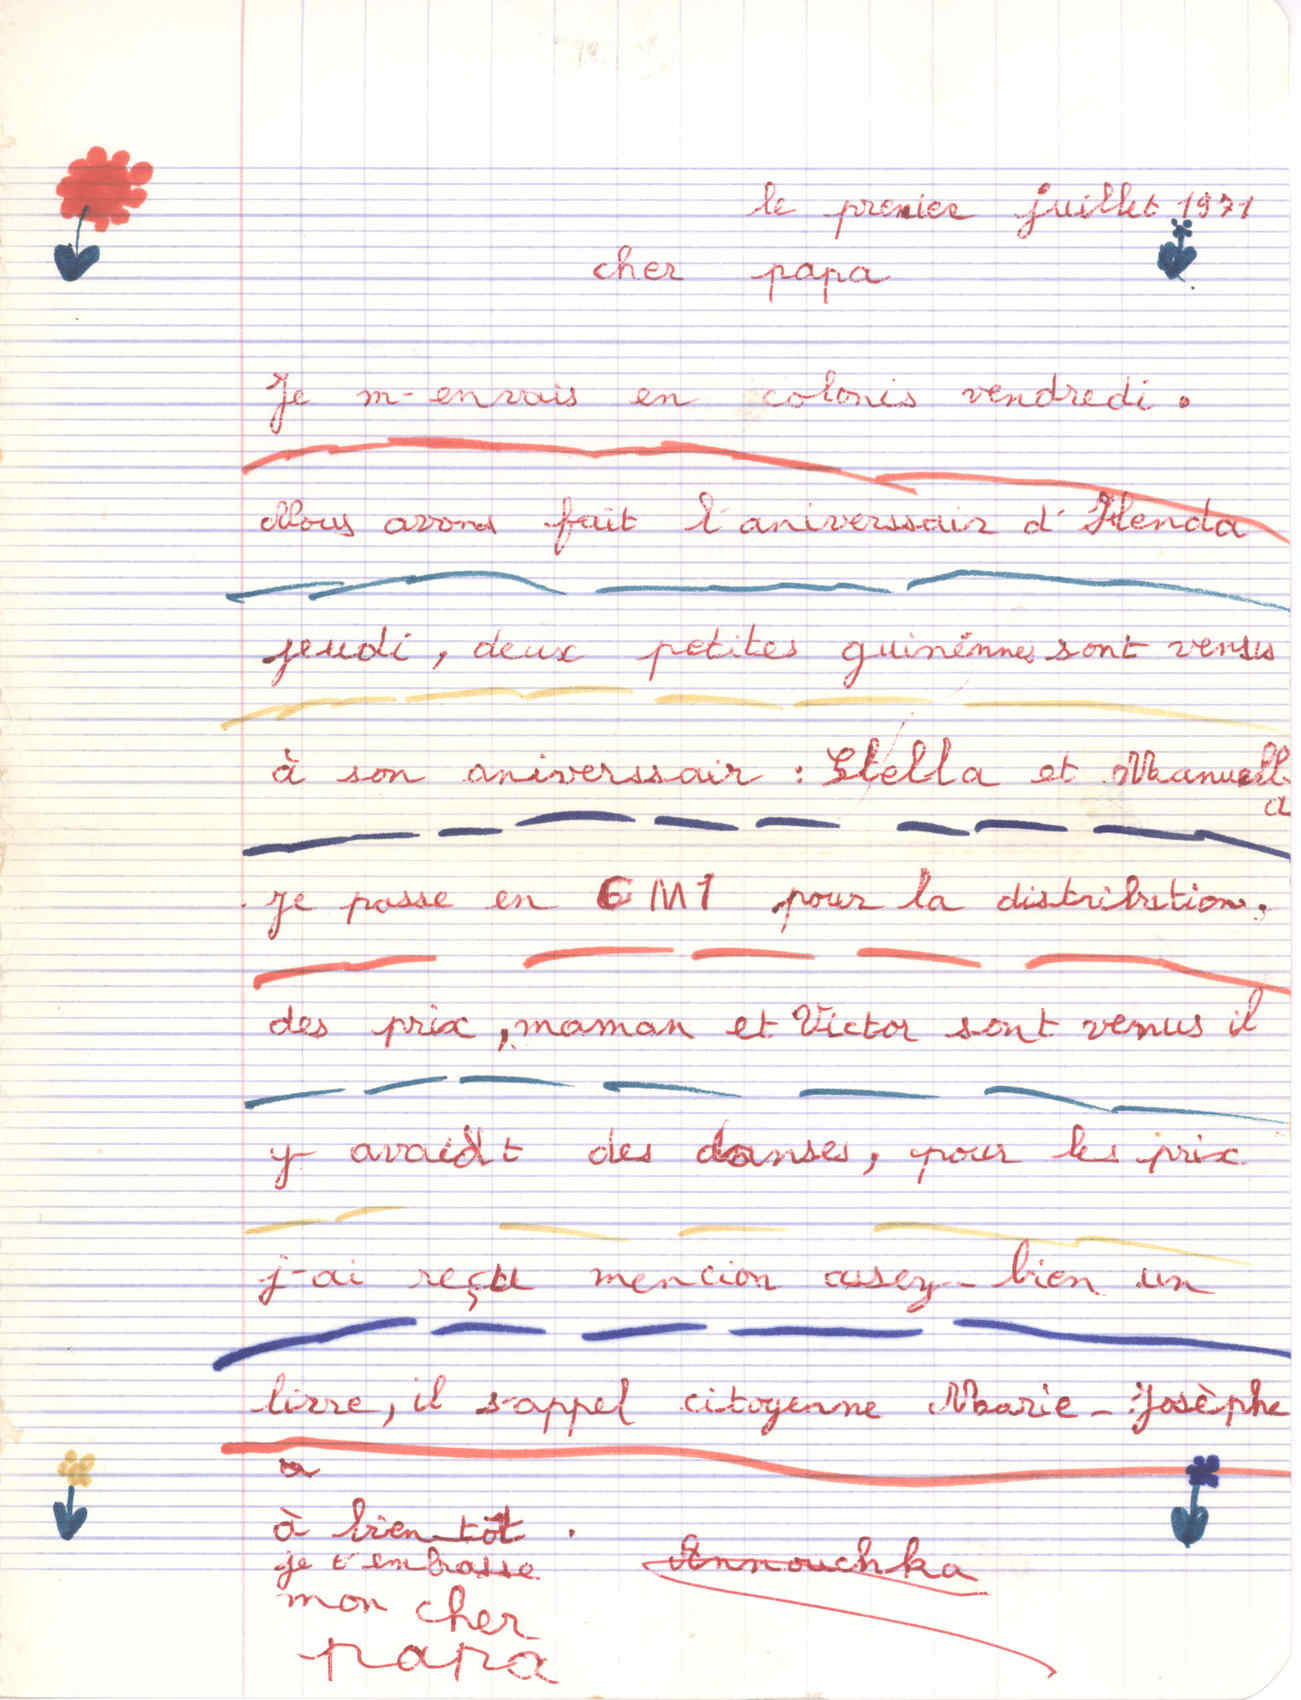 le premier juillet 1971
cher papa
Je m-en vais en colonis vendredi.
Nous avons fait l'aniverssair d'Henda
jeudi, deux petites guinénnes sont venus
à son aniverssair : Stella et Manuella
Je passe en CM1 pour la distribution.
des prix, maman et Victor sont venus il
y avaidt des danses, pour les prix
j-ai reçu mencion assey-bien un
livre, il s-appel citoyenne Marie-Josèphe
a
à bien-tôt.
je t'embrasse
mon cher
papa
Annouchka